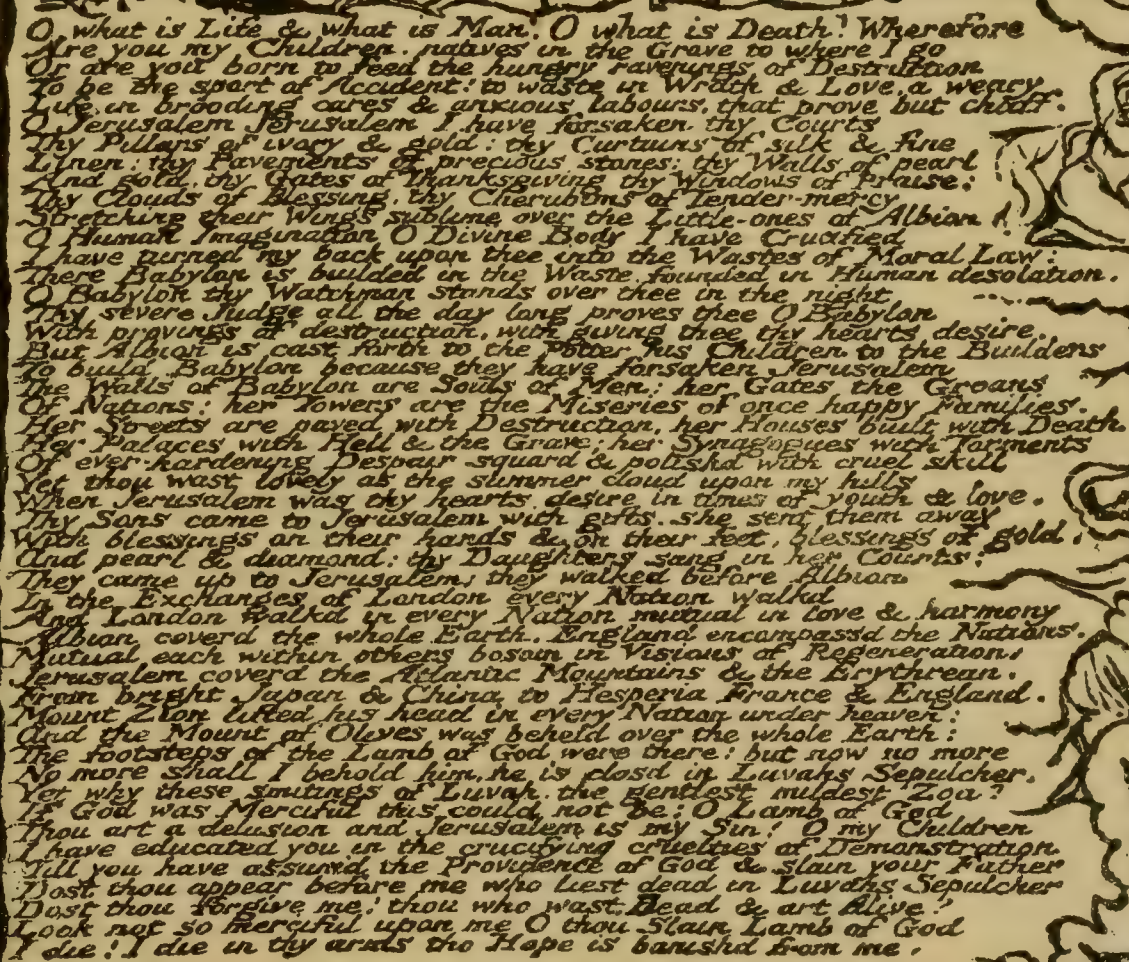 O what is Life & what is Man. O what is Death? Wherefore
Are you my Children, natives in the Grave to where I go
Or are you born to feed the hungry ravenings of Destruction
To be the sport of Accident! to waste in Wrath & Love, a weary
Life, in brooding cares & anxious labours, that prove but chaff.
O Jerusalem Jerusalem I have forsaken thy Courts
Thy Pillars of ivory & gold: thy Curtains of silk & fine
Linen: thy Pavements of precious stones: thy Walls of pearl
And gold, thy Gates of Thanksgiving thy Windows of Praise:
Thy Clouds of Blessing, thy Cherubims of Tender-mercy
Stretching their Wings sublime over the Little-ones of Albion
O Human Imagination O Divine Body I have Crucified
I have turned my back upon thee into the Wastes of Moral Law:
There Babylon is builded in the Waste, founded in Human desolation.
O Babylon thy Watchman stands over thee in the night
Thy severe Judge all the day long proves thee O Babylon
With provings of destruction, with giving thee thy hearts desire.
But Albion is cast forth to the Potter his Children to the Builders
To build Babylon because they have forsaken Jerusalem
The Walls of Babylon are Souls of Men: her Gates the Groans
Of Nations: her Towers are the Miseries of once happy Families.
Her Streets are paved with Destruction, her Houses built with Death
Her Palaces with Hell & the Grave; her Synagogues with Torments
Of ever-hardening Despair squard & polishd with cruel skill
Yet thou wast lovely as the summer cloud upon my hills
When Jerusalem was thy hearts desire in times of youth & love.
Thy Sons came to Jerusalem with gifts, she sent them away
With blessings on their hands & on their feet, blessings of gold,
And pearl & diamond: thy Daughters sang in her Courts:
They came up to Jerusalem; they walked before Albion
In the Exchanges of London every Nation walkd
And London walkd in every Nation mutual in love & harmony
Albion coverd the whole Earth, England encompassd the Nations,
Mutual each within others bosom in Visions of Regeneration;
Jerusalem coverd the Atlantic Mountains & the Erythrean,
From bright Japan & China to Hesperia France & England.
Mount Zion lifted his head in every Nation under heaven:
And the Mount of Olives was beheld over the whole Earth:
The footsteps of the Lamb of God were there: but now no more
No more shall I behold him, he is closd in Luvahs Sepulcher.
Yet why these smitings of Luvah, the gentlest mildest Zoa?
If God was Merciful this could not be: O Lamb of God
Thou art a delusion and Jerusalem is my Sin! O my Children
I have educated you in the crucifying cruelties of Demonstration
Till you have assum'd the Providence of God & slain your Father
Dost thou appear before me who liest dead in Luvahs Sepulcher
Dost thou forgive me! thou who wast Dead & art Alive?
Look not so merciful upon me O thou Slain Lamb of God
I die! I die in thy arms tho Hope is banishd from me.